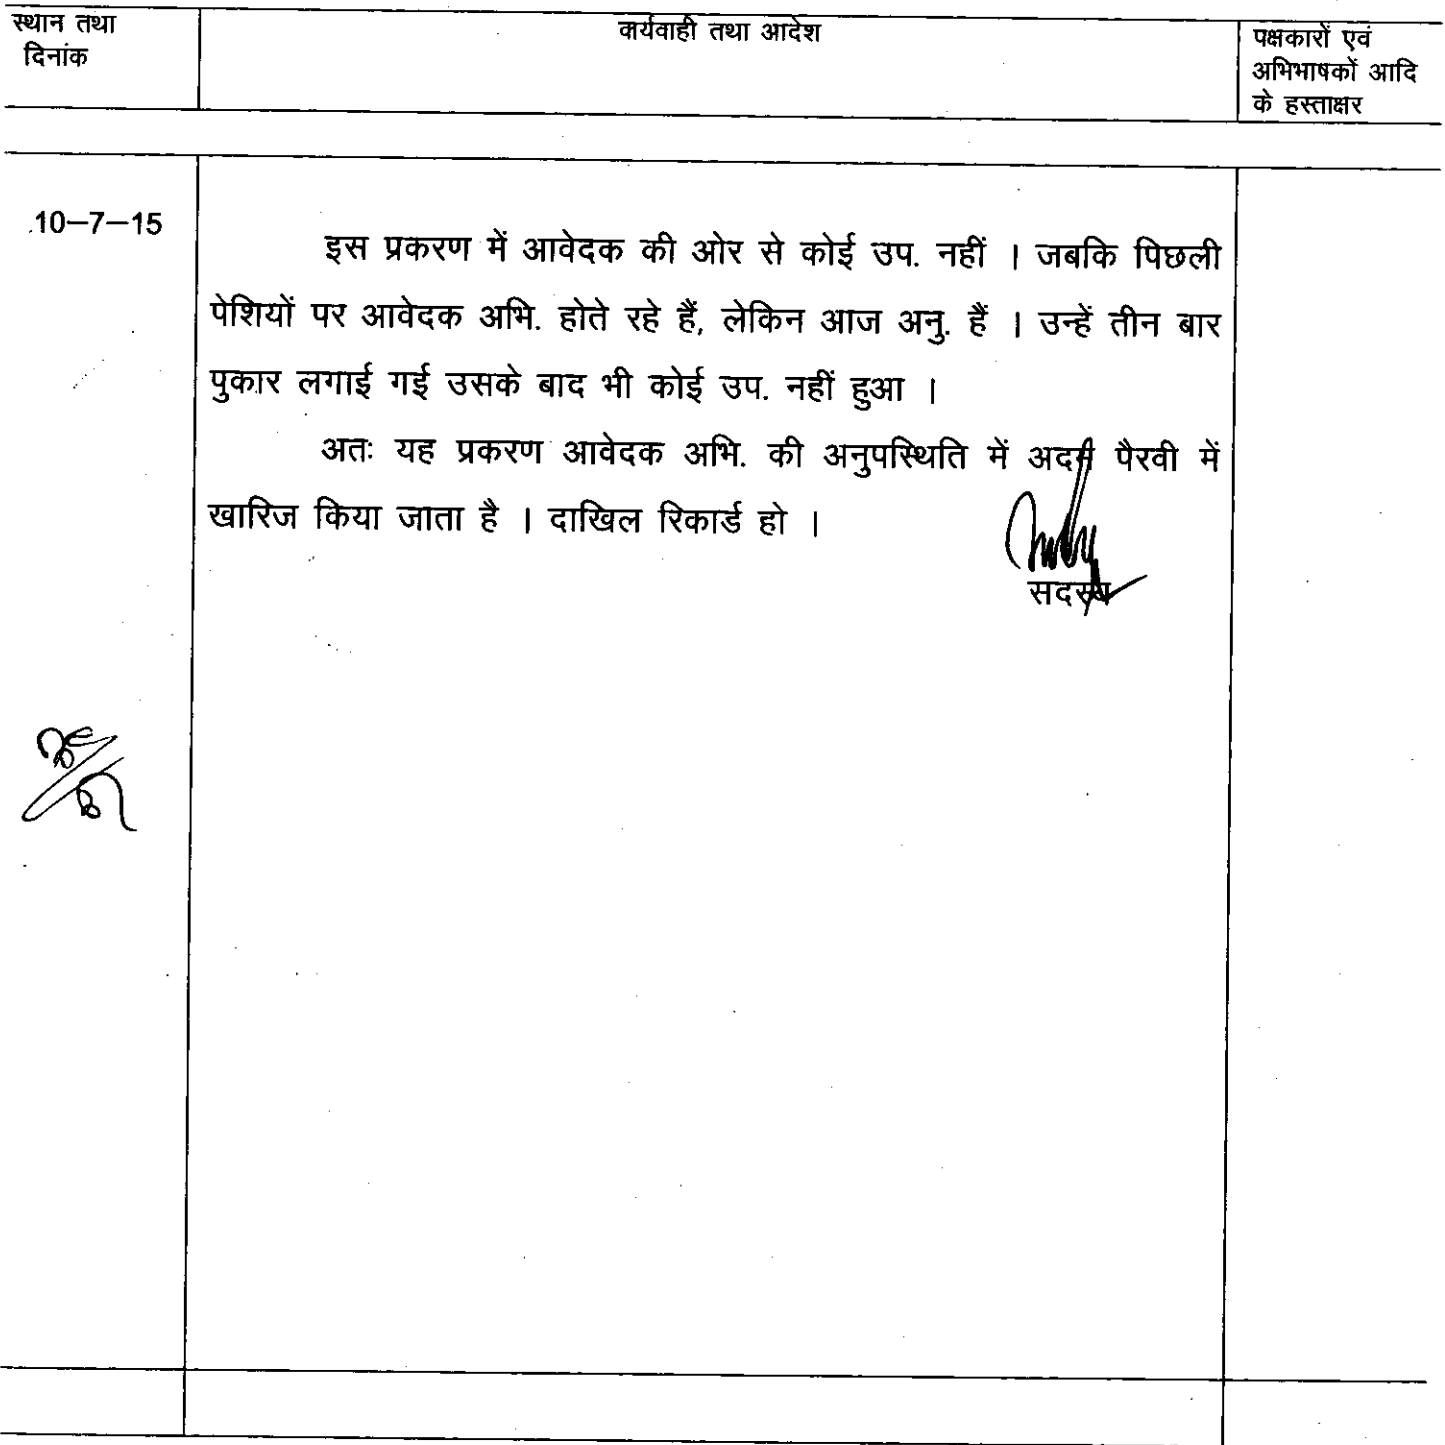 स्थान तथा
दिनांक
कार्यवाही तथा आदेश
पक्षकारों एवं
अभिभाषकों आदि
के हस्ताक्षर
10–7–15
इस प्रकरण में आवेदक की ओर से कोई उप. नहीं । जबकि पिछली
पेशियों पर आवेदक अभि. होते रहे हैं, लेकिन आज अनु. हैं । उन्हें तीन बार
पुकार लगाई गई उसके बाद भी कोई उप. नहीं हुआ ।
अतः यह प्रकरण आवेदक अभि. की अनुपस्थिति में अदम पैरवी में
खारिज किया जाता है । दाखिल रिकार्ड हो ।
सदस्य